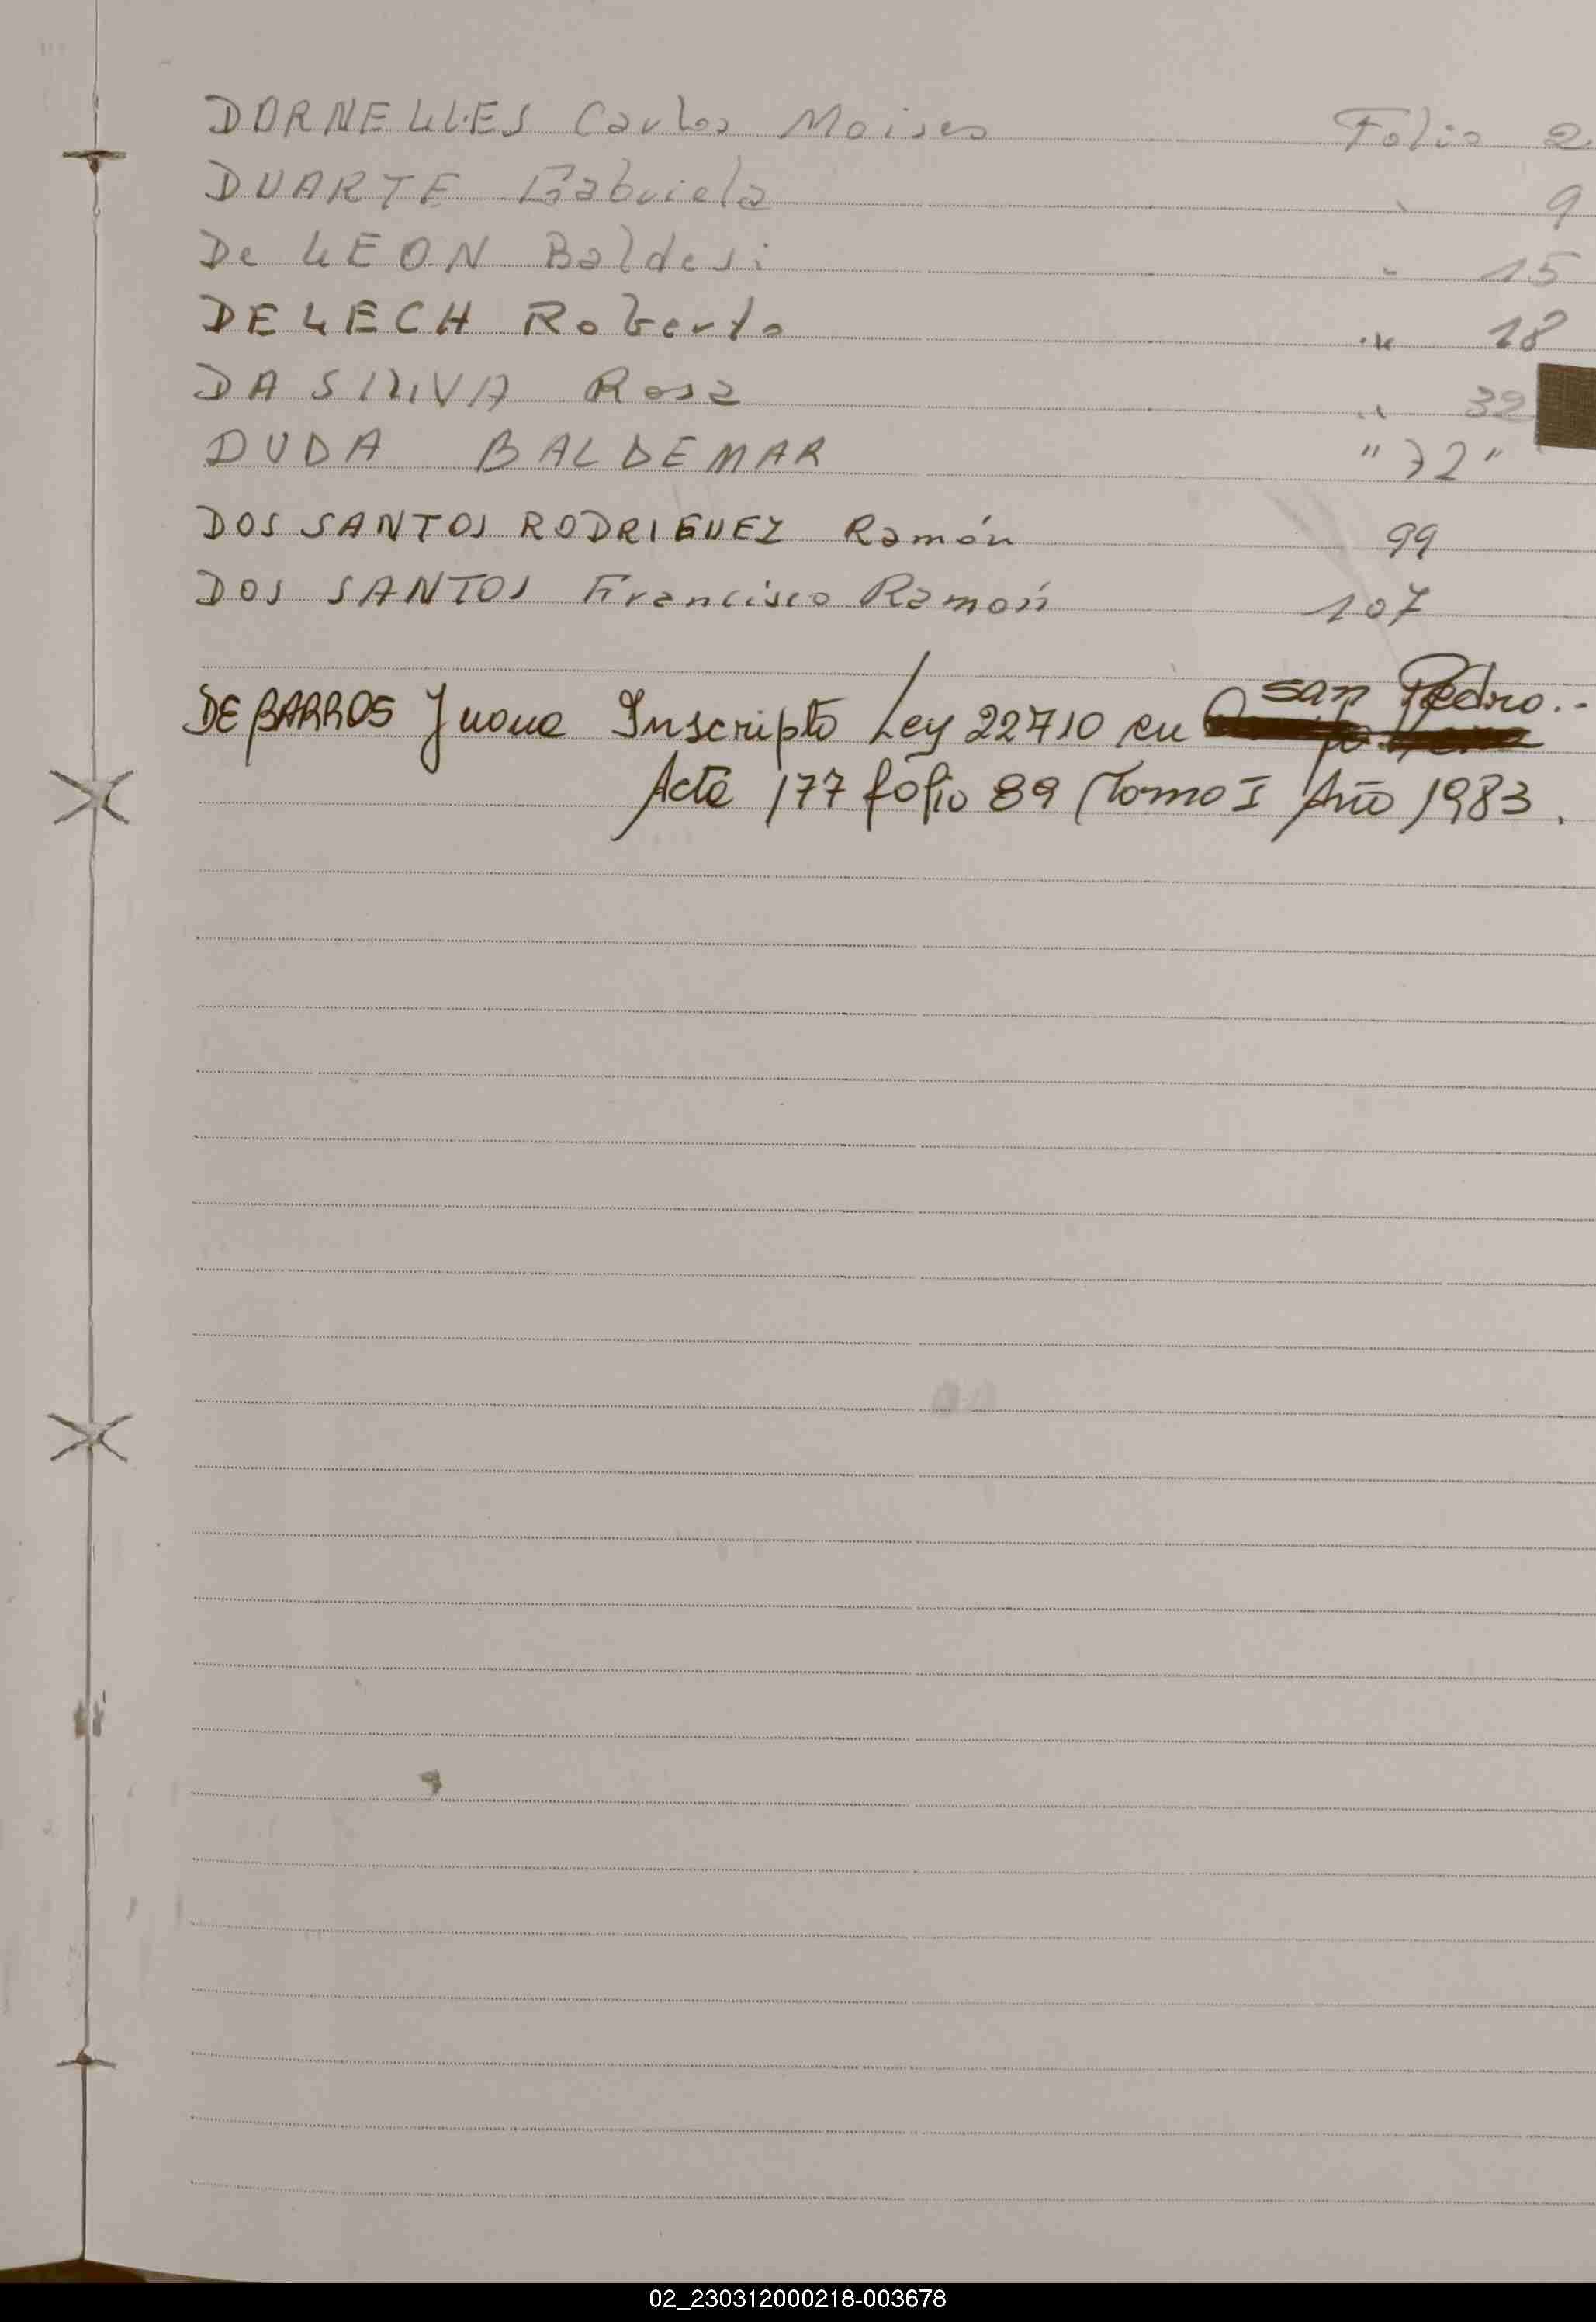 DORNELLES Carlos Moises Folio 2
DUARTE Gabriela " 9
De LEON Baldesi " 15
DELECH Roberto " 18
DA SILIVA Rosa " 32
DUDA BALDEMAR " 72 "
DOS SANTOS RODRIGUEZ Ramón 99
DOS SANTOS Francisco Ramón 107
DE BARROS Juana Inscripto Ley 22710 en San Pedro..-
Acta 177 folio 89 Tomo I Año 1983.
02_230312000218-003678